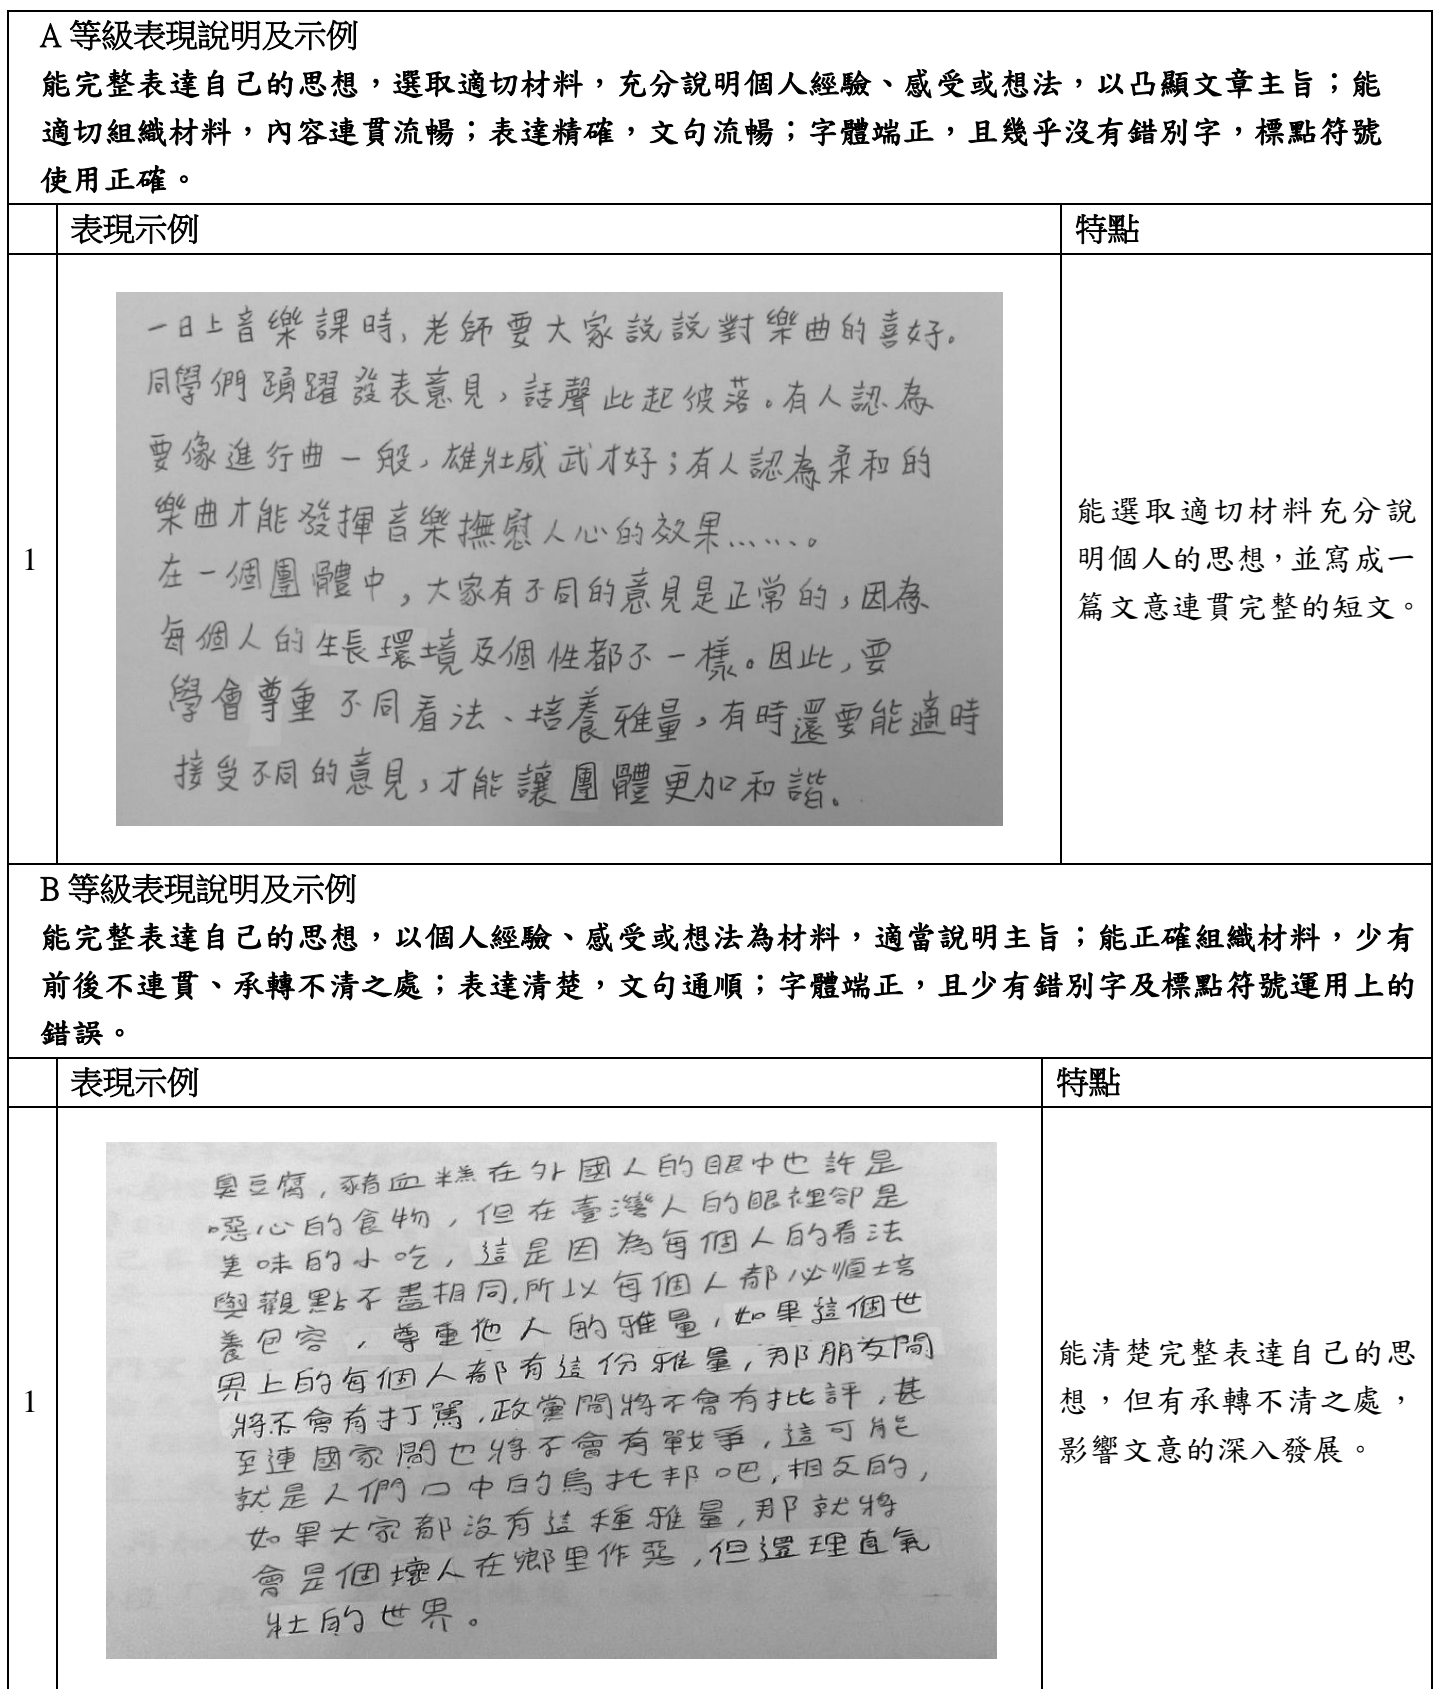 A 等級表現說明及示例
能完整表達自己的思想，選取適切材料，充分說明個人經驗、感受或想法，以凸顯文章主旨；能
適切組織材料，內容連貫流暢；表達精確，文句流暢；字體端正，且幾乎沒有錯別字，標點符號
使用正確。
表現示例
特點
1
一日上音樂課時，老師要大家說說對樂曲的喜好。
同學們踴躍發表意見，話聲此起彼落。有人認為
要像進行曲一般，雄壯威武才好；有人認為柔和的
樂曲才能發揮音樂撫慰人心的效果……。
在一個團體中，大家有不同的意見是正常的，因為
每個人的生長環境及個性都不一樣。因此，要
學會尊重不同看法、培養雅量，有時還要能適時
接受不同的意見，才能讓團體更加和諧。
能選取適切材料充分說
明個人的思想，並寫成一
篇文意連貫完整的短文。
B 等級表現說明及示例
能完整表達自己的思想，以個人經驗、感受或想法為材料，適當說明主旨；能正確組織材料，少有
前後不連貫、承轉不清之處；表達清楚，文句通順；字體端正，且少有錯別字及標點符號運用上的
錯誤。
表現示例
特點
1
臭豆腐，豬血糕在外國人的眼中也許是
噁心的食物，但在臺灣人的眼裡卻是
美味的小吃，這是因為每個人的看法
與觀點不盡相同，所以每個人都必須培
養包容，尊重他人的雅量，如果這個世
界上的每個人都有這份雅量，那朋友間
將不會有打罵，政黨間將不會有批評，甚
至連國家間也將不會有戰爭，這可能
就是人們口中的烏托邦吧，相反的，
如果大家都沒有這種雅量，那就將
會是個壞人在鄉里作惡，但還理直氣
壯的世界。
能清楚完整表達自己的思
想，但有承轉不清之處，
影響文意的深入發展。